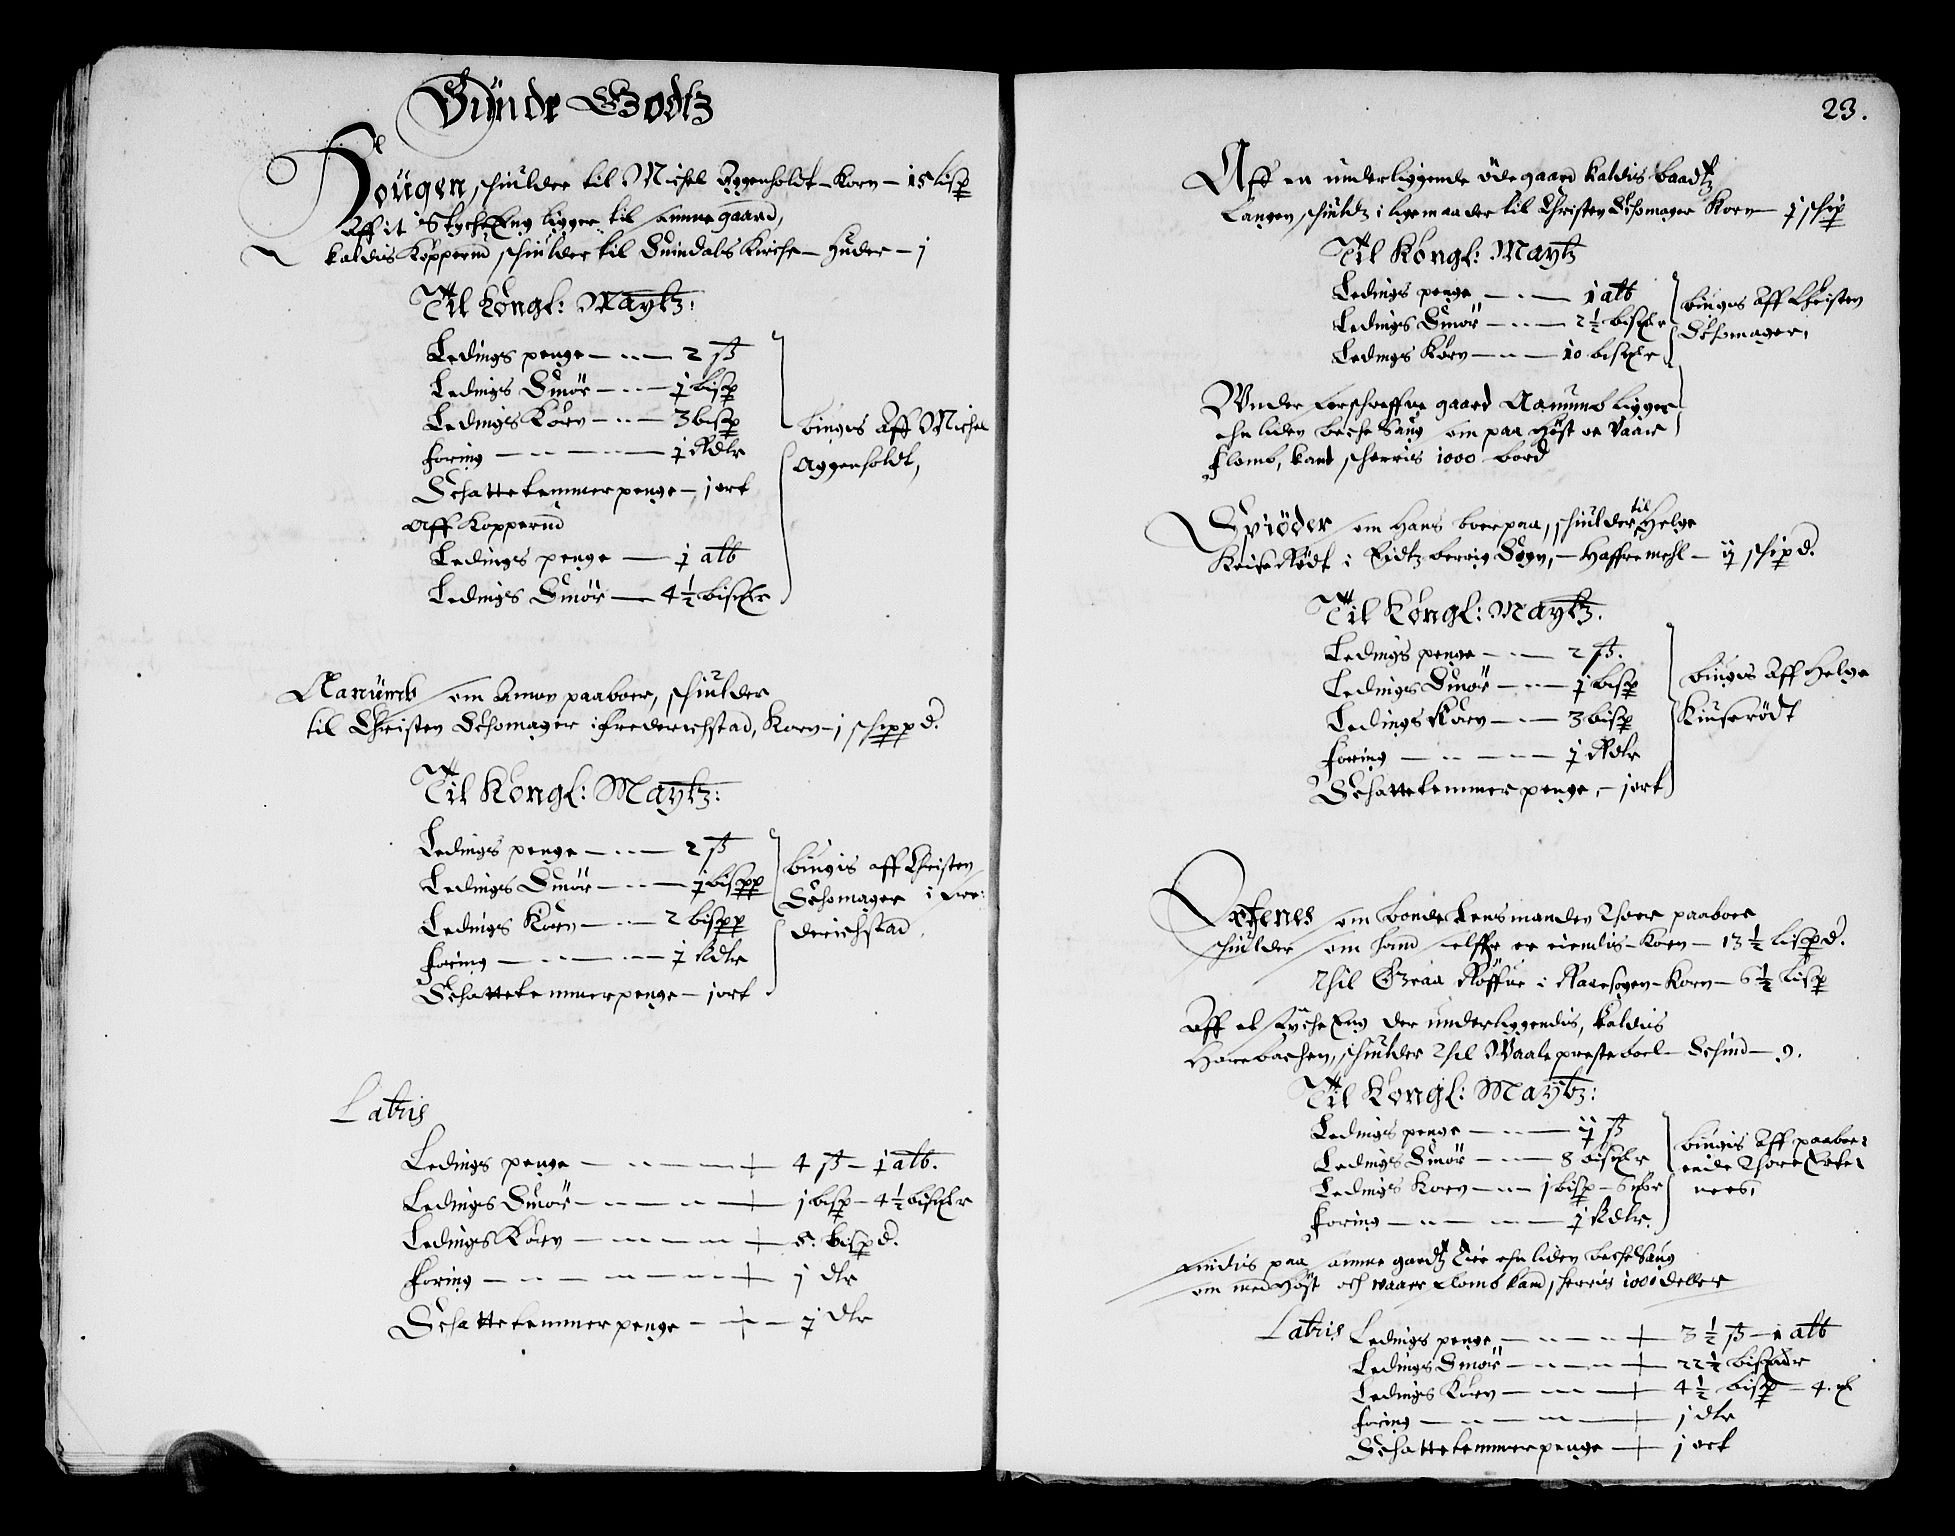 Bünde Godtz
Hougen, schiulder til Michel Aggenholdt - Korn - 15 lisp
Aff it Støche Eng ligger til samme gaard,
kaldis Kopperud schiulder til Suindals Kirche - Huder - j
Til Kongl: Maytz:
Ledings penge - 2 ß
Ledings Smør - j bisp
Ledings Korn - 3 bisp
foring - j Rdlr
Schattekammer penge - j ort
Aff Kopperud
Ledings penge - j alb
Ledings Smør - 4½ bismer
bügis Aff Michel
Aggenholdt,
Aanumb som Amon paaboer, schiulder
til Christen Schomager i frederichstad, Korn - j schippd.
Til Kongl: Maytz:
Ledings penge - 2 ß
Ledings Smør - j bispp
Ledings Korn - 2 bispp
foring - j Rdlr
Schattekammer penge - j ort
bügis aff Christen
Schomager i Fre:
derichstad
Latris
Ledings penge - 4 ß - j alb.
Ledings Smør - j bisp - 4½ bismer
Ledings Korn - 5. bispd.
foring - j dlr
Schattekammer penge - j dlr
23.
Aff en underliggende öde gaard kaldis baadtz
Langen, schiuldtz i lige maader til Christen Schomager Korn - j schip
Til Kongl: Maytz
Ledings penge - j alb
Ledings Smør - 2½ bismer
Ledings Korn - 10 bismer
bügis Aff Christen
Schomager,
Wnder forschreffne gaard Aanumb ligger
ehn liden beche Saug som paa Høst oc Vaar
flomb, kand scherris 1000 bord
Spiöder som Hans boer paa, schiulder til Helge
Kiise Rödt i Ridtz berrig Sogn, - Haffremehl - ij schipd.
Til Kongl: Maytz.
Ledings penge - 2 ß.
Ledings Smør - j bisp
Ledings Korn - 3 bisp
foring - j Rdlr
Schattekammer penge, - j ort
bügis Aff Helge
Kiuserödt
Exenes som bonde Lensmanden Thoer paaboer
schiulder som hand selffr er eiendis - Korn - 13½ lispd.
Thil Graa Röffue i Raae sogen - Korn - 6½ lisp
Aff et støche Eng der underliggendis, kaldis
Horrebachen, schiulder Thil Waale presteboel - Schind - 9.
Til Kongl: Maytz:
Ledings penge - ij ß
Ledings Smør - 8 bismer
Ledings Korn - j bisp - 6 mr
foring - j Rdlr.
bügis Aff paaboe:
ende Thore Exe:
nees,
findis paa samme gardtz Eie ehn liden beche Saug
som med Høst och waaer flomb kand, scherris 1000 deller
Latris Ledings penge - 3½ ß - j alb
Ledings Smør - 22½ bismer
Ledings Korn - 4½ bisp - 4. mr
foring - j dlr
Schattekammer penge - j ort